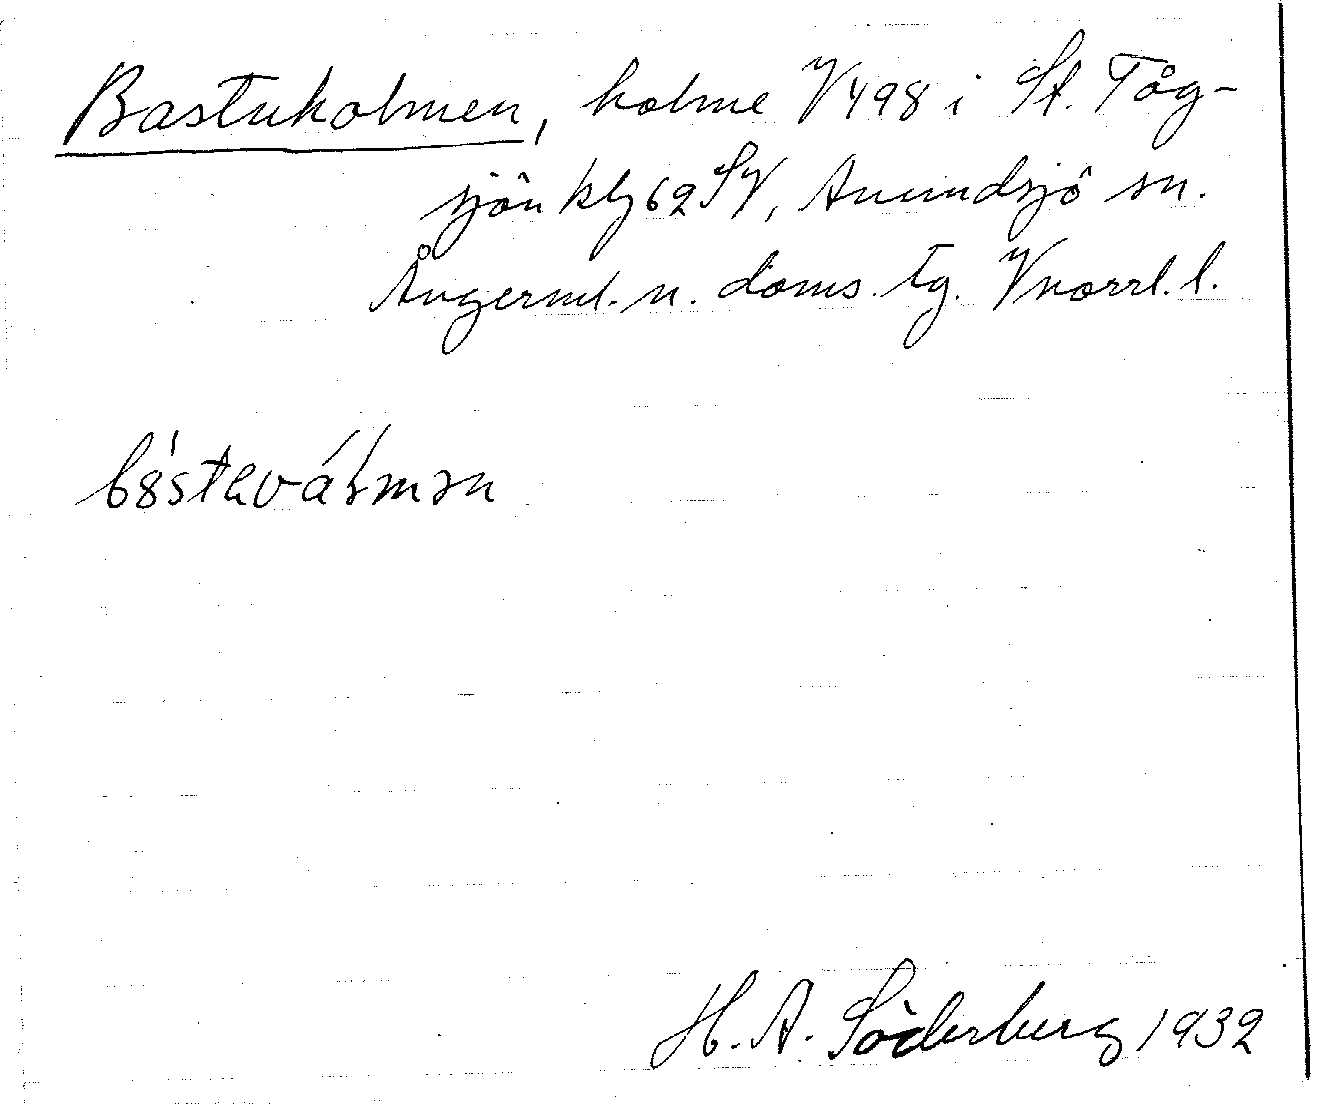 Bastuholmen, holme V498 i St. Tåg-
sjön klg 62 SV, Anundsjö sn.
Ångerml. n. doms. tg. Vnorrl. l.
H. A. Söderberg 1932